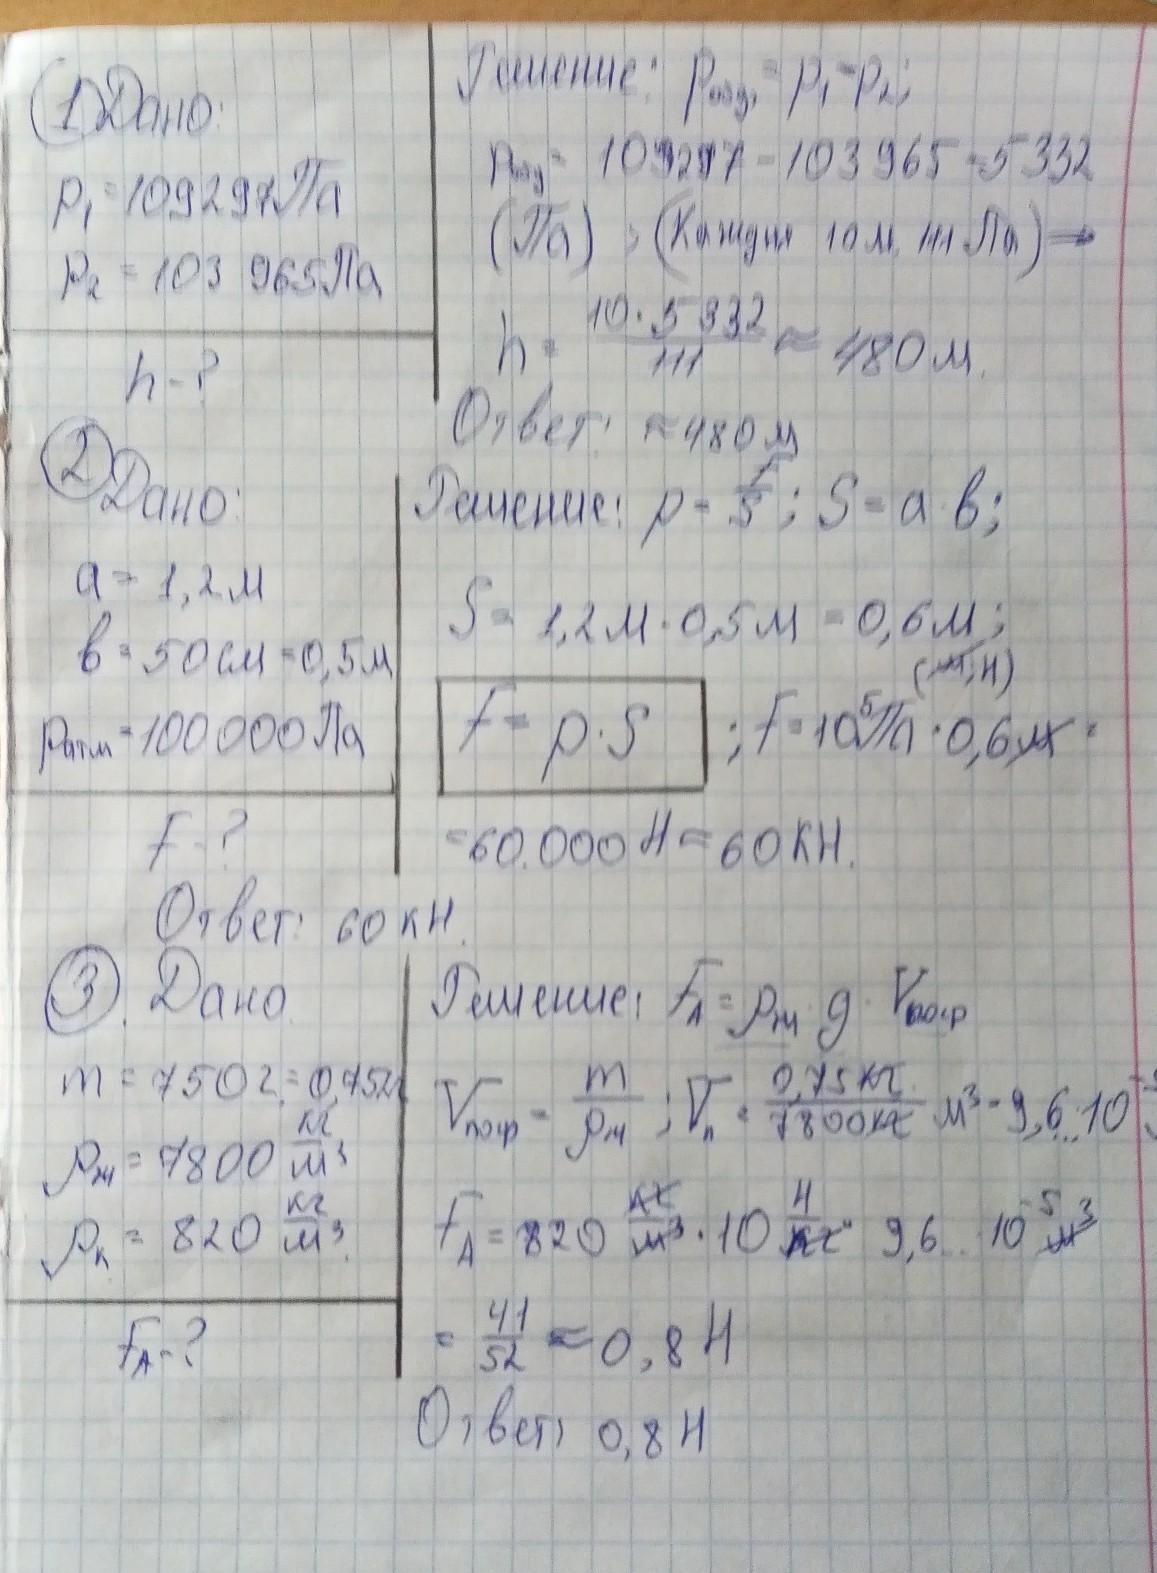 1 Дано:
p₁ = 109297 Па
p₂ = 103 965 Па
h - ?
Решение: pвозд. = p₁ - p₂;
pвозд = 109297 - 103 965 = 5332
(Па) ; (Каждые 10 м, 111 Па) →
h = 10 · 5332 / 111 ≈ 480 м.
Ответ: ≈ 480 м
2 Дано:
a = 1,2 м
в = 50 см = 0,5 м
pатм = 100 000 Па
F - ?
Решение: p = F/S ; S = a · в;
S = 1,2 м · 0,5 м = 0,6 м ;
F = p · S ; F = 10⁵ Па · 0,6 м =
= 60.000 Н = 60 КН.
Ответ: 60 кН.
3. Дано
m = 750 г = 0,75
ρж = 7800 кг/м³
ρк = 820 кг/м³.
FА - ?
Решение: FА = ρж · g · Vпогр
Vпогр = m/ρж ; Vп = 0,75 кг / 7800 кг м³ = 9,6.. · 10⁻⁵
FА = 820 кг/м³ · 10 Н/кг · 9,6... 10⁻⁵ м³
= 41/52 ≈ 0,8 Н
Ответ: 0,8 Н